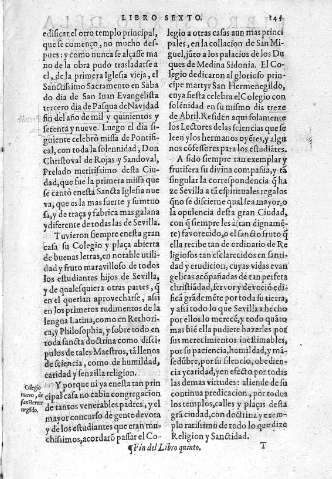 LIBRO SEXTO.
145
edificar el otro templo principal,
que se començo, no mucho des-
pues: y como nunca se alçasse ma
no de la obra pudo trasladarse a
el, de la primera Iglesia vieja, el
Sanctissimo Sacramento en Saba
do dia de San Iuan Evangelista
tercero dia de Pasqua de Navidad
fin del año de mil y quinientos y
setenta y nueve. Luego el dia si-
guiente celebrò missa de Pontifi-
cal, con toda la solennidad, Don
Christoval de Rojas y Sandoval,
Prelado meritissimo desta Ciu-
dad, que fue la primera missa que
se cantò en esta Sancta Iglesia nue
va, que es la mas fuerte y sumtuo
sa, y de traça y fabrica mas galana
y diferente de todas las de Sevilla.
Tuvieron siempre en esta gran
casa su Colegio y plaça abierta
de buenas letras, en notable utili-
dad y fruto maravilloso de todos
los estudiantes hijos de Sevilla,
y de qualesquiera otras partes, q̃
en el querian aprovecharse, assi
en los primeros rudimentos de la
lengua Latina, como en Rethori-
ca, y Philosophia, y sobre todo en
toda sancta doctrina como disci-
pulos de tales Maestros, tã llenos
de sciencia, como de humildad,
caridad y senzilla religion.
Y porque ni ya en esta tan prin
cipal casa no cabia congregacion
de tantos venerables padres, y el
mayor concurso de gente devota
y de los estudiantes que eran mu-
chissimos, acordarõ passar el Co-
Colegio
nuevo, de
san Herme
negildo.
legio a otras casas aun mas princi
pales, en la collacion de San Mi-
guel, jũto a los palacios de los Du
ques de Medina Sidonia. El Cole
gio dedicaron al glorioso prin-
cipe martyr San Hermenegildo,
cuya fiesta celebra el Colegio con
solenidad en su mismo dia treze
de Abril. Residen aqui solamente
los Lectores de las sciencias que se
leen y los hermanos oyẽtes, y algu
nos cõfessores para los estudiãtes.
A sido siempre tan exemplar y
frutifera su divina compañia, y tã
singular la correspondencia q̃ ha
ze Sevilla a tã espirituales regalos
qño se dicierne qual sea mayor, o
la opulencia desta gran Ciudad,
con q̃ siempre les à (tan dignamẽ-
te) favorecido, o el sancto fruto q̃
ella recibe tan de ordinario de Re
ligiosos tan esclarecidos en santi-
dad y erudicion, cuyas vidas evan
gelicas acõpañadas de tan perfeta
christiãdad, fervor y devociõ edi
ficã grãdemẽte por toda su tierra,
y assi todo lo que Sevilla hà hecho
por ellos lo terecẽ, y todo quãto
mas biẽ ella pudiere hazerles por
sus merecimientos inestimables,
por su paciencia, humildad, y mã-
sedũbre, por su silencio, obedien-
cia y caridad, y en efecto por todas
las demas virtudes: aliende de su
continua predicacion, por todos
los templos, calles y plaças desta
grã ciudad, con doctrina y exem-
plo rarissimo de todo lo que dize
Religion y Sanctidad.
¶Fin del Libro quinto.
T